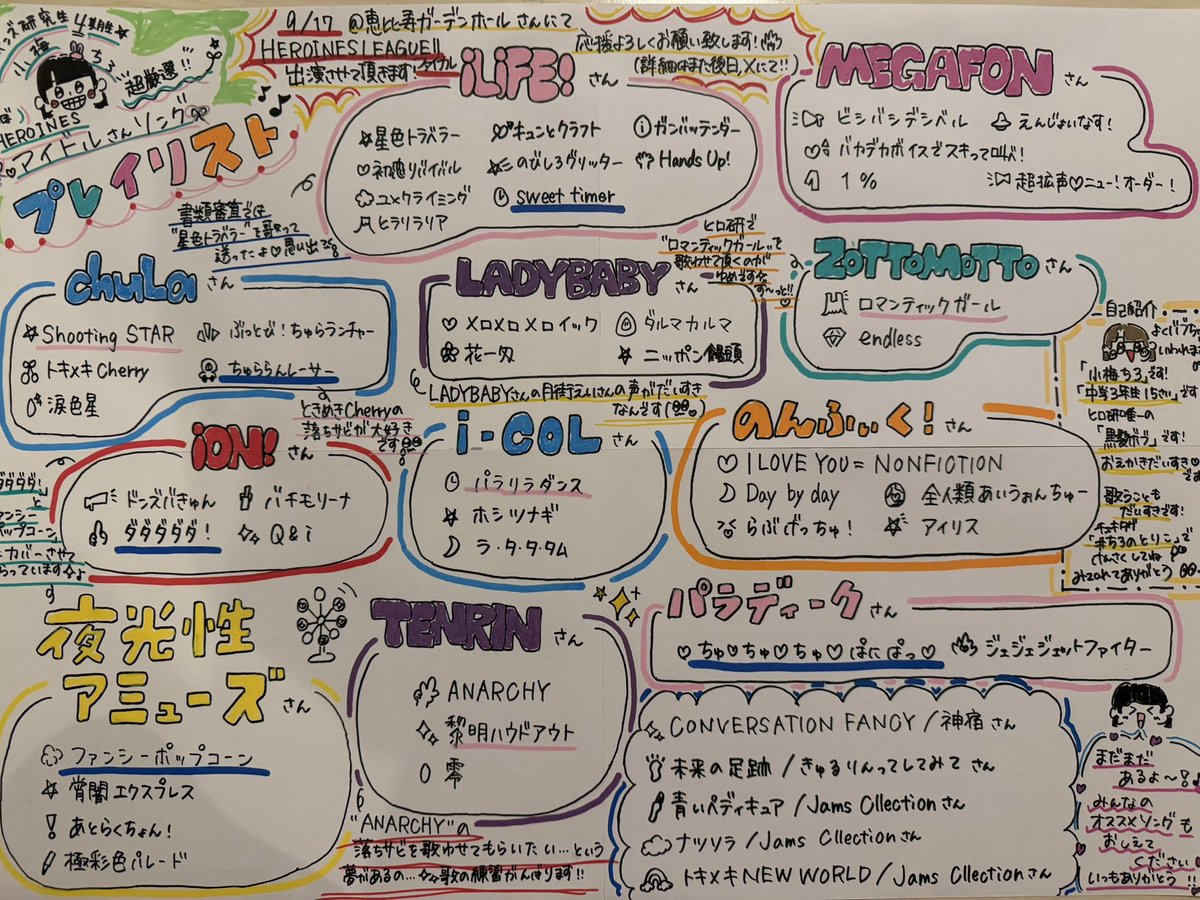 研究生4期生
小梅ちろ
超厳選!!
HEROINES
アイドルさんソング
プレイリスト
9/17 @恵比寿ガーデンホールさんにて
HEROINES LEAGUE!!
出演させて頂きます!
応援よろしくお願い致します!
(詳細はまた後日、Xにて!!)
書類審査では
"星色トラベラー"を歌って
送ったよ♡思い出
iLiFE! さん
星色トラベラー
初恋リバイバル
ユメクライミング
ヒラリラリア
キュンとクラフト
のびしろヴリッター
sweet timer
ガンバッテンダー
Hands Up!
MEGAFON さん
ビシバシデシベル
えんじょいなす!
バカデカボイスでスキって叫べ!
1%
超拡声♡ニュー!オーダー!
chuLa さん
Shooting STAR
トキメキCherry
涙色星
ぶっとび!ちゅらランチャー
ちゅららんレーサー
ときめきCherryの
落ちサビが大好き
です
LADYBABY さん
メロメロメロイック
花一匁
ダルマカルマ
ニッポン饅頭
LADYBABYさんの月街えいさんの声がだいすき
なんです
ヒロ研で
"ロマンティックガール"を
歌わせて頂くのが
ゆめです
ず〜っと!!
ZOTTOMOTTO さん
ロマンティックガール
endless
自己紹介
よくパグちゃん
いわれます
「小梅ちろ」です!
「中学3年生15さい」です
ヒロ研唯一の
「黒髪ボブ」です!
おえかきだいすき♡
です
歌うことも
だいすきです!
チェキタグ
「#ちろのとりこ」で
けんさくしてね
みつけてくれてありがとう
iON! さん
ドンズバきゅん
ダダダダダ!
バチモリーナ
Q&i
ダダダダダ!
と
ファンシー
ポップコーン
カバーさせて
もらっています
i-COL さん
パラリラダンス
ホシツナギ
ラ・タ・タ・タム
のんふぃく! さん
I LOVE YOU = NONFICTION
Day by day
らぶげっちゅ!
全人類あいうぉんちゅー
アイリス
夜光性
アミューズ さん
ファンシーポップコーン
宵闇エクスプレス
あとらくちょん!
極彩色パレード
TENRIN さん
ANARCHY
黎明ハウドアウト
零
"ANARCHY"の
落ちサビを歌わせてもらいたい…という
夢があるの…歌の練習がんばります!!
パラディーク さん
ちゅ♡ちゅ♡ちゅ♡ぱにぱっ♡
ジェジェジェットファイター
CONVERSATION FANCY / 神宿さん
未来の足跡 / きゅるりんってしてみてさん
青いペディキュア / Jams Cllectionさん
ナツソラ / Jams Cllectionさん
トキメキNEW WORLD / Jams Cllectionさん
まだまだ
あるよ〜!
みんなの
オススメソングも
おしえて
ください
いつもありがとう!!